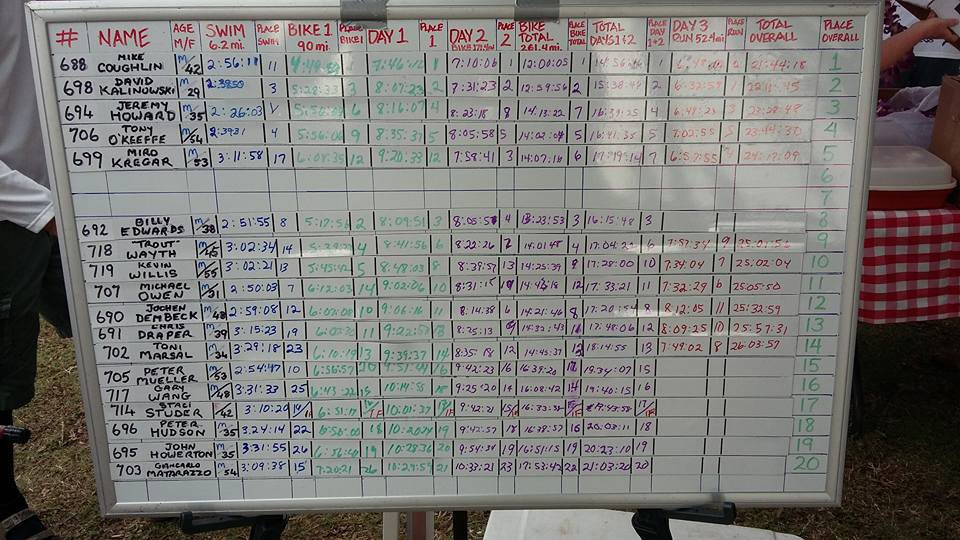 # NAME AGE M/F SWIM 6.2 mi. PLACE SWIM BIKE 1 90 mi. PLACE BIKE 1 DAY 1 PLACE 1 DAY 2 BIKE 171.4 mi PLACE 2 BIKE TOTAL 261.4 mi. PLACE BIKE TOTAL TOTAL DAYS 1+2 PLACE DAY 1+2 DAY 3 RUN 52.4 mi. PLACE RUN TOTAL OVERALL PLACE OVERALL
688 MIKE COUGHLIN M/42 2:56:11 11 7:46:12 1 7:10:06 1 12:00:05 1 1 21:44:18 1
698 DAVID KALINOWSKI M/29 3 5:28:33 3 8:07:23 2 7:31:23 2 12:59:56 2 15:38:48 2 6:32:59 1 2
694 JEREMY HOWARD M/35 2:26:03 1 6 8:16:07 4 8:23:18 8 14:13:22 7 16:39:25 4 6:48:23 3 23:28:48 3
706 TONY O'KEEFFE M/54 2:39:31 4 5:56:06 9 8:35:37 5 8:05:58 5 14:02:04 5 16:41:35 5 7:02:55 5 23:44:30 4
699 MIRO KREGAR M/53 3:11:58 17 6:08:35 12 9:20:33 12 7:58:41 3 14:07:16 6 17:19:14 7 6:57:55 4 24:17:09 5
6
7
692 BILLY EDWARDS M/38 2:51:55 8 5:17:56 2 8:09:51 3 8:05:57 4 13:23:53 3 16:15:48 3 8
718 "TROUT" WAYTH M/45 3:02:34 14 4 8:41:56 6 8:22:26 7 4 17:04:22 6 7:57:34 9 25:01:56 9
719 KEVIN WILLIS M/55 3:02:21 13 5:45:42 5 8:48:03 8 8:39:57 13 14:25:39 9 17:28:00 10 7:34:04 7 25:02:04 10
707 MICHAEL OWEN M/31 2:50:03 7 6:12:03 14 9:02:06 10 8:31:15 12 17:33:21 11 7:32:29 6 25:05:50 11
690 JOCHEN DEMBECK M/48 2:59:08 12 10 9:06:16 11 8:14:38 6 14:21:46 8 8:12:05 11 25:32:59 12
691 CHRIS DRAPER M/39 3:15:23 19 11 9:22:58 8:25:13 9 14:32:43 17:48:06 12 8:09:25 10 25:57:31 13
702 TONI MARSAL M/34 3:29:18 23 6:10:19 13 9:39:37 14 8:35:18 12 14:45:37 18:14:55 13 7:49:02 8 26:03:57 14
705 PETER MUELLER M/53 2:54:47 10 6:56:57 9:51:44 16 9:42:23 16 16:39:20 19:34:07 15 15
717 GARY WANG M/48 3:31:33 25 6:43:22 10:14:58 9:25:20 14 16:08:42 14 19:40:15 16 16
714 STACI STUDER F/42 3:10:20 6:51:17 10:01:37 9:42:21 17
696 PETER HUDSON M/35 3:24:14 22 18 19 9:42:57 18 16 20:03:11 18 18
695 JOHN HOWERTON M/35 3:31:55 26 19 10:28:36 20 9:54:34 19 16:51:15 19 20:23:10 19 19
703 GIANCARLO MATARAZZO M/54 3:09:38 15 7:20:21 26 10:29:59 21 10:33:21 23 17:53:42 22 21:03:20 20 20